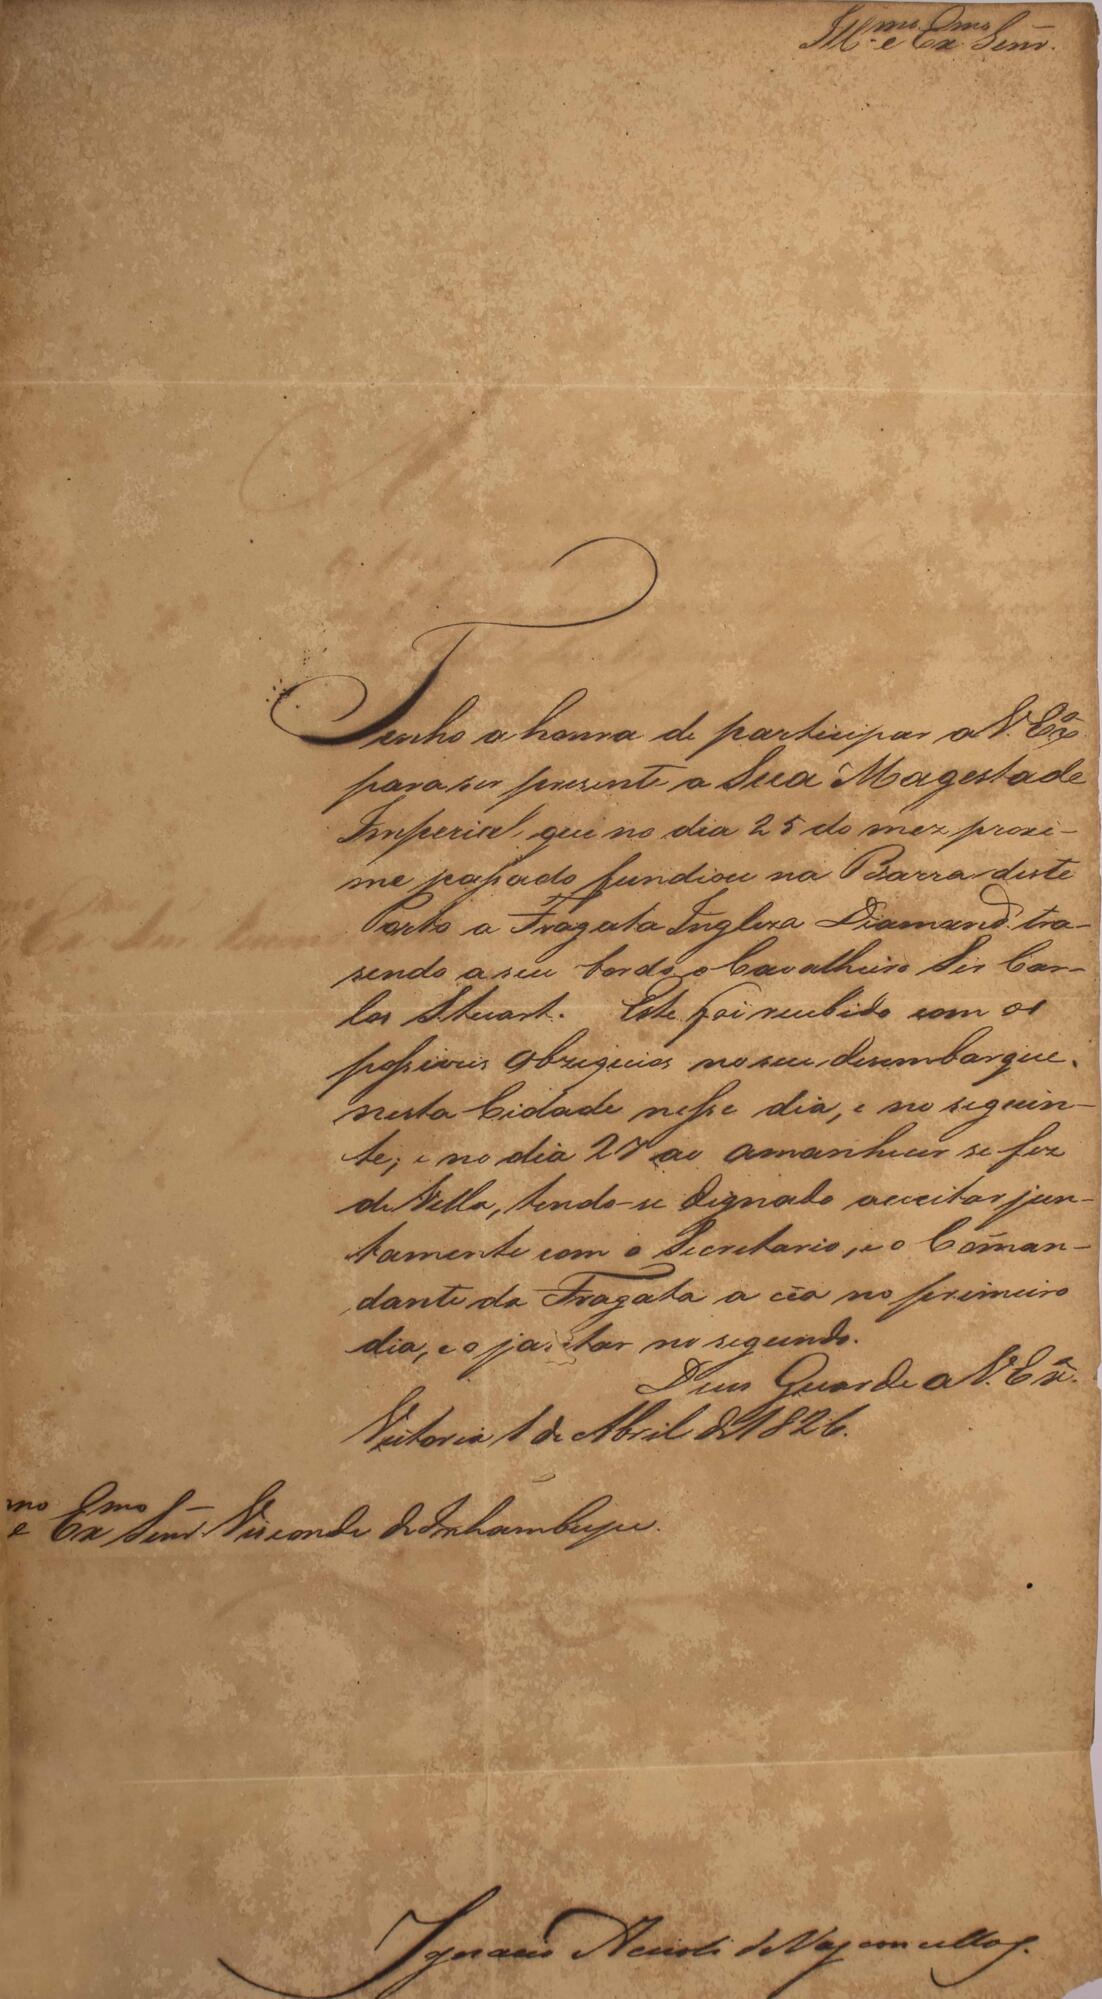 Ill.mo e Ex.mo Senr.
Tenho a honra de participar a V. Ex.a
para ser presente a Sua Magestade
Imperial, que no dia 25 do mez proxi-
mo passado fundiou na Barra deste
Porto a Fragata Ingleza Diamand tra-
sendo a seu bordo o Cavalheiro Sir Car-
los Stuart. Este foi recebido com os
possiveis obzequios no seu desembarque
nesta Cidade nesse dia, e no seguin-
te; e no dia 27 ao amanhecer se fez
de Vella, tendo-se dignado acceitar jun-
tamente com o Secretario, e o Cõman-
dante da Fragata a cêa no primeiro
dia, e o jantar no segundo.
Deus Guarde a V. Ex.a
Victoria 1 de Abril de 1826.
mo e Ex.mo Senr. Visconde de Inhambupe.
Ignacio Accioli de Vasconcellos.